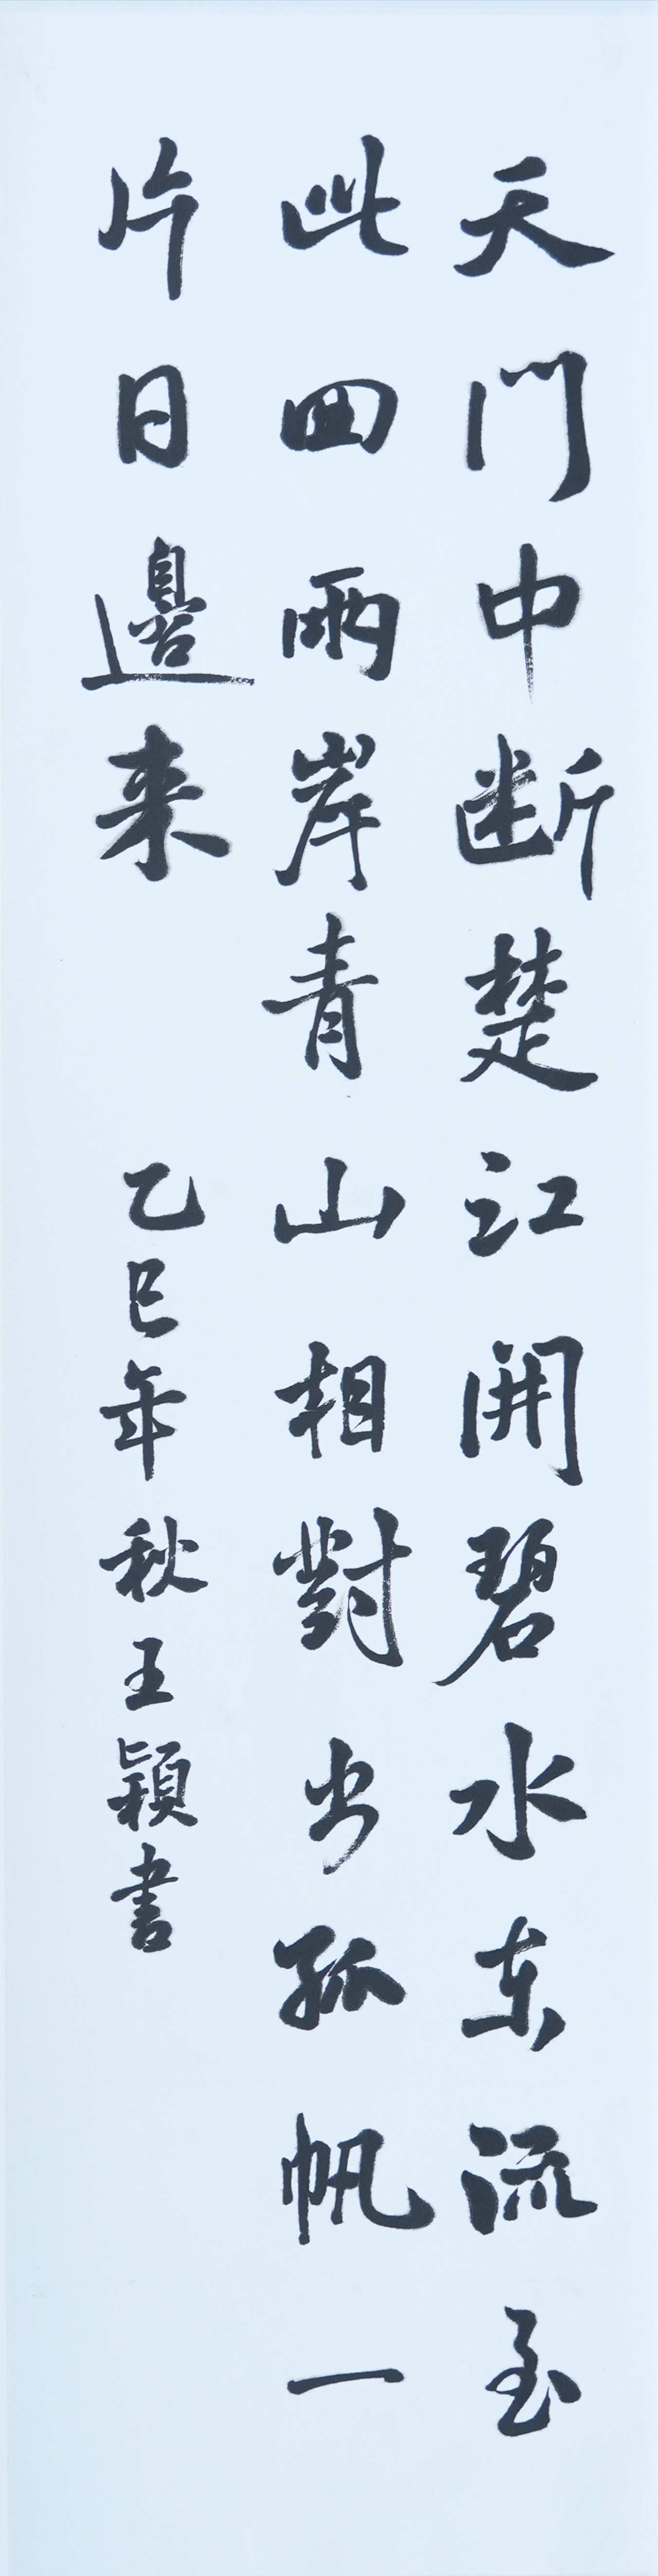 天門中断楚江開碧水東流至
此回兩岸青山相對出孤帆一
片日邊来
乙巳年秋王穎書